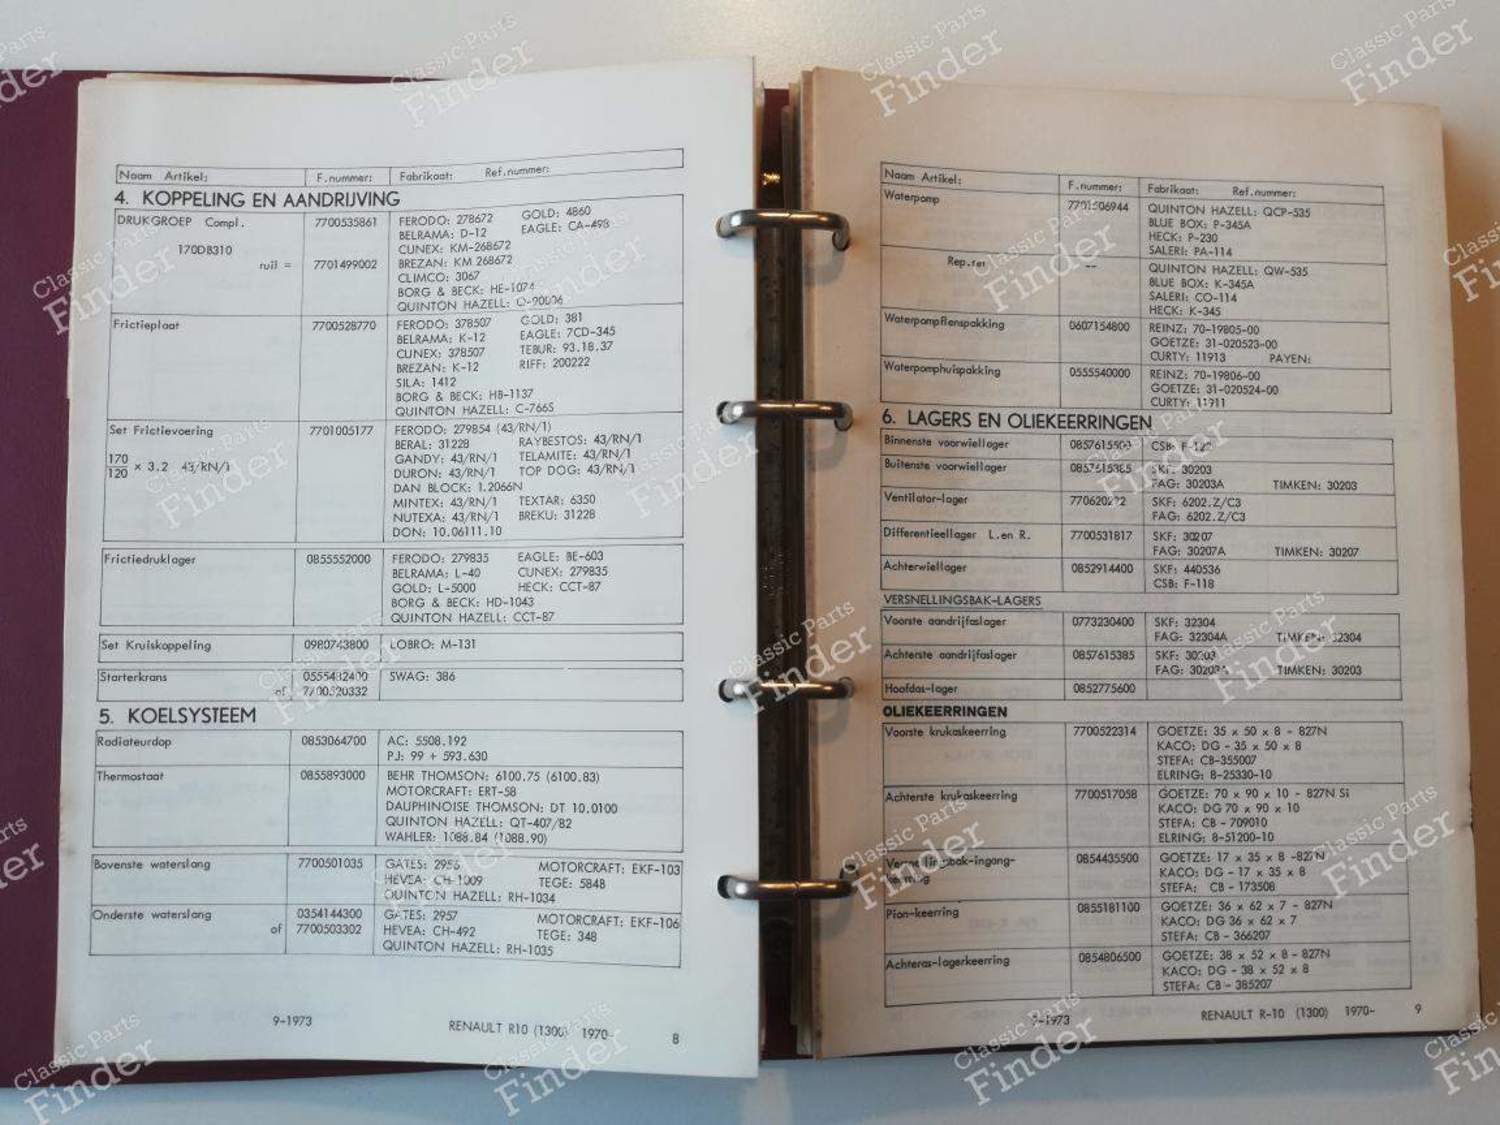 Naam Artikel: F.nummer: Fabrikaat: Ref.nummer:
4. KOPPELING EN AANDRIJVING
DRUKGROEP Compl. 7700535861 FERODO: 278672 GOLD: 4860
BELRAMA: D-12 EAGLE: CA-498
170DB310 CUNEX: KM-268672
ruil = 7701499002 BREZAN: KM 268672
CLIMCO: 3067
BORG & BECK: HE-1074
QUINTON HAZELL: O-90006
Frictieplaat 7700528770 FERODO: 378507 GOLD: 381
BELRAMA: K-12 EAGLE: 7CD-345
CUNEX: 378507 TEBUR: 93.18.37
BREZAN: K-12 RIFF: 200222
SILA: 1412
BORG & BECK: HB-1137
QUINTON HAZELL: C-7665
Set Frictievoering 7701005177 FERODO: 279854 (43/RN/1)
BERAL: 31228 RAYBESTOS: 43/RN/1
170
120 x 3.2 43/RN/1 GANDY: 43/RN/1 TELAMITE: 43/RN/1
DURON: 43/RN/1 TOP DOG: 43/RN/1
DAN BLOCK: 1.2066N
MINTEX: 43/RN/1 TEXTAR: 6350
NUTEXA: 43/RN/1 BREKU: 31228
DON: 10.06111.10
Frictiedruklager 0855552000 FERODO: 279835 EAGLE: BE-603
BELRAMA: L-40 CUNEX: 279835
GOLD: L-5000 HECK: CCT-87
BORG & BECK: HD-1043
QUINTON HAZELL: CCT-87
Set Kruiskoppeling 0980743800 LOBRO: M-131
Starterkrans 0555482400 SWAG: 386
of 7700520332
5. KOELSYSTEEM
Radiateurdop 0853064700 AC: 5508.192
PJ: 99 + 593.630
Thermostaat 0855893000 BEHR THOMSON: 6100.75 (6100.83)
MOTORCRAFT: ERT-58
DAUPHINOISE THOMSON: DT 10.0100
QUINTON HAZELL: QT-407/82
WAHLER: 1088.84 (1088.90)
Bovenste waterslang 7700501035 GATES: 2956 MOTORCRAFT: EKF-103
HEVEA: CH-1009 TEGE: 5848
QUINTON HAZELL: RH-1034
Onderste waterslang 0354144300 GATES: 2957 MOTORCRAFT: EKF-106
of 7700503302 HEVEA: CH-492 TEGE: 348
QUINTON HAZELL: RH-1035
9-1973 RENAULT R10 (1300) 1970- 8
Naam Artikel: F.nummer: Fabrikaat: Ref.nummer:
Waterpomp 7701506944 QUINTON HAZELL: QCP-535
BLUE BOX: P-345A
HECK: P-230
SALERI: PA-114
Rep.set -- QUINTON HAZELL: QW-535
BLUE BOX: K-345A
SALERI: CO-114
HECK: K-345
Waterpompflenspakking 0607154800 REINZ: 70-19805-00
GOETZE: 31-020523-00
CURTY: 11913 PAYEN:
Waterpomphuispakking 0555540000 REINZ: 70-19806-00
GOETZE: 31-020524-00
CURTY: 11911
6. LAGERS EN OLIEKEERRINGEN
Binnenste voorwiellager 0857615500 CSB: F-122
Buitenste voorwiellager 0857615385 SKF: 30203
FAG: 30203A TIMKEN: 30203
Ventilator-lager SKF: 6202.Z/C3
FAG: 6202.Z/C3
Differentieellager L.en R. 7700531817 SKF: 30207
FAG: 30207A TIMKEN: 30207
Achterwiellager 0852914400 SKF: 440536
CSB: F-118
VERSNELLINGSBAK-LAGERS
Voorste aandrijfaslager 0773230400 SKF: 32304
FAG: 32304A TIMKEN: 32304
Achterste aandrijfaslager 0857615385 SKF: 30203
FAG: 30203A TIMKEN: 30203
Hoofdas-lager 0852775600
OLIEKEERRINGEN
Voorste krukaskeerring 7700522314 GOETZE: 35 x 50 x 8 - 827N
KACO: DG - 35 x 50 x 8
STEFA: CB-355007
ELRING: 8-25330-10
Achterste krukaskeerring 7700517058 GOETZE: 70 x 90 x 10 - 827N Si
KACO: DG 70 x 90 x 10
STEFA: CB - 709010
ELRING: 8-51200-10
Versnellingsbak-ingang- 0854435500 GOETZE: 17 x 35 x 8 -827N
keerring KACO: DG - 17 x 35 x 8
STEFA: CB - 173508
Pion-keerring 0855181100 GOETZE: 36 x 62 x 7 - 827N
KACO: DG 36 x 62 x 7
STEFA: CB - 366207
Achteras-lagerkeerring 0854806500 GOETZE: 38 x 52 x 8 - 827N
KACO: DG - 38 x 52 x 8
STEFA: CB - 385207
9-1973 RENAULT R-10 (1300) 1970- 9
Classic Parts
Finder